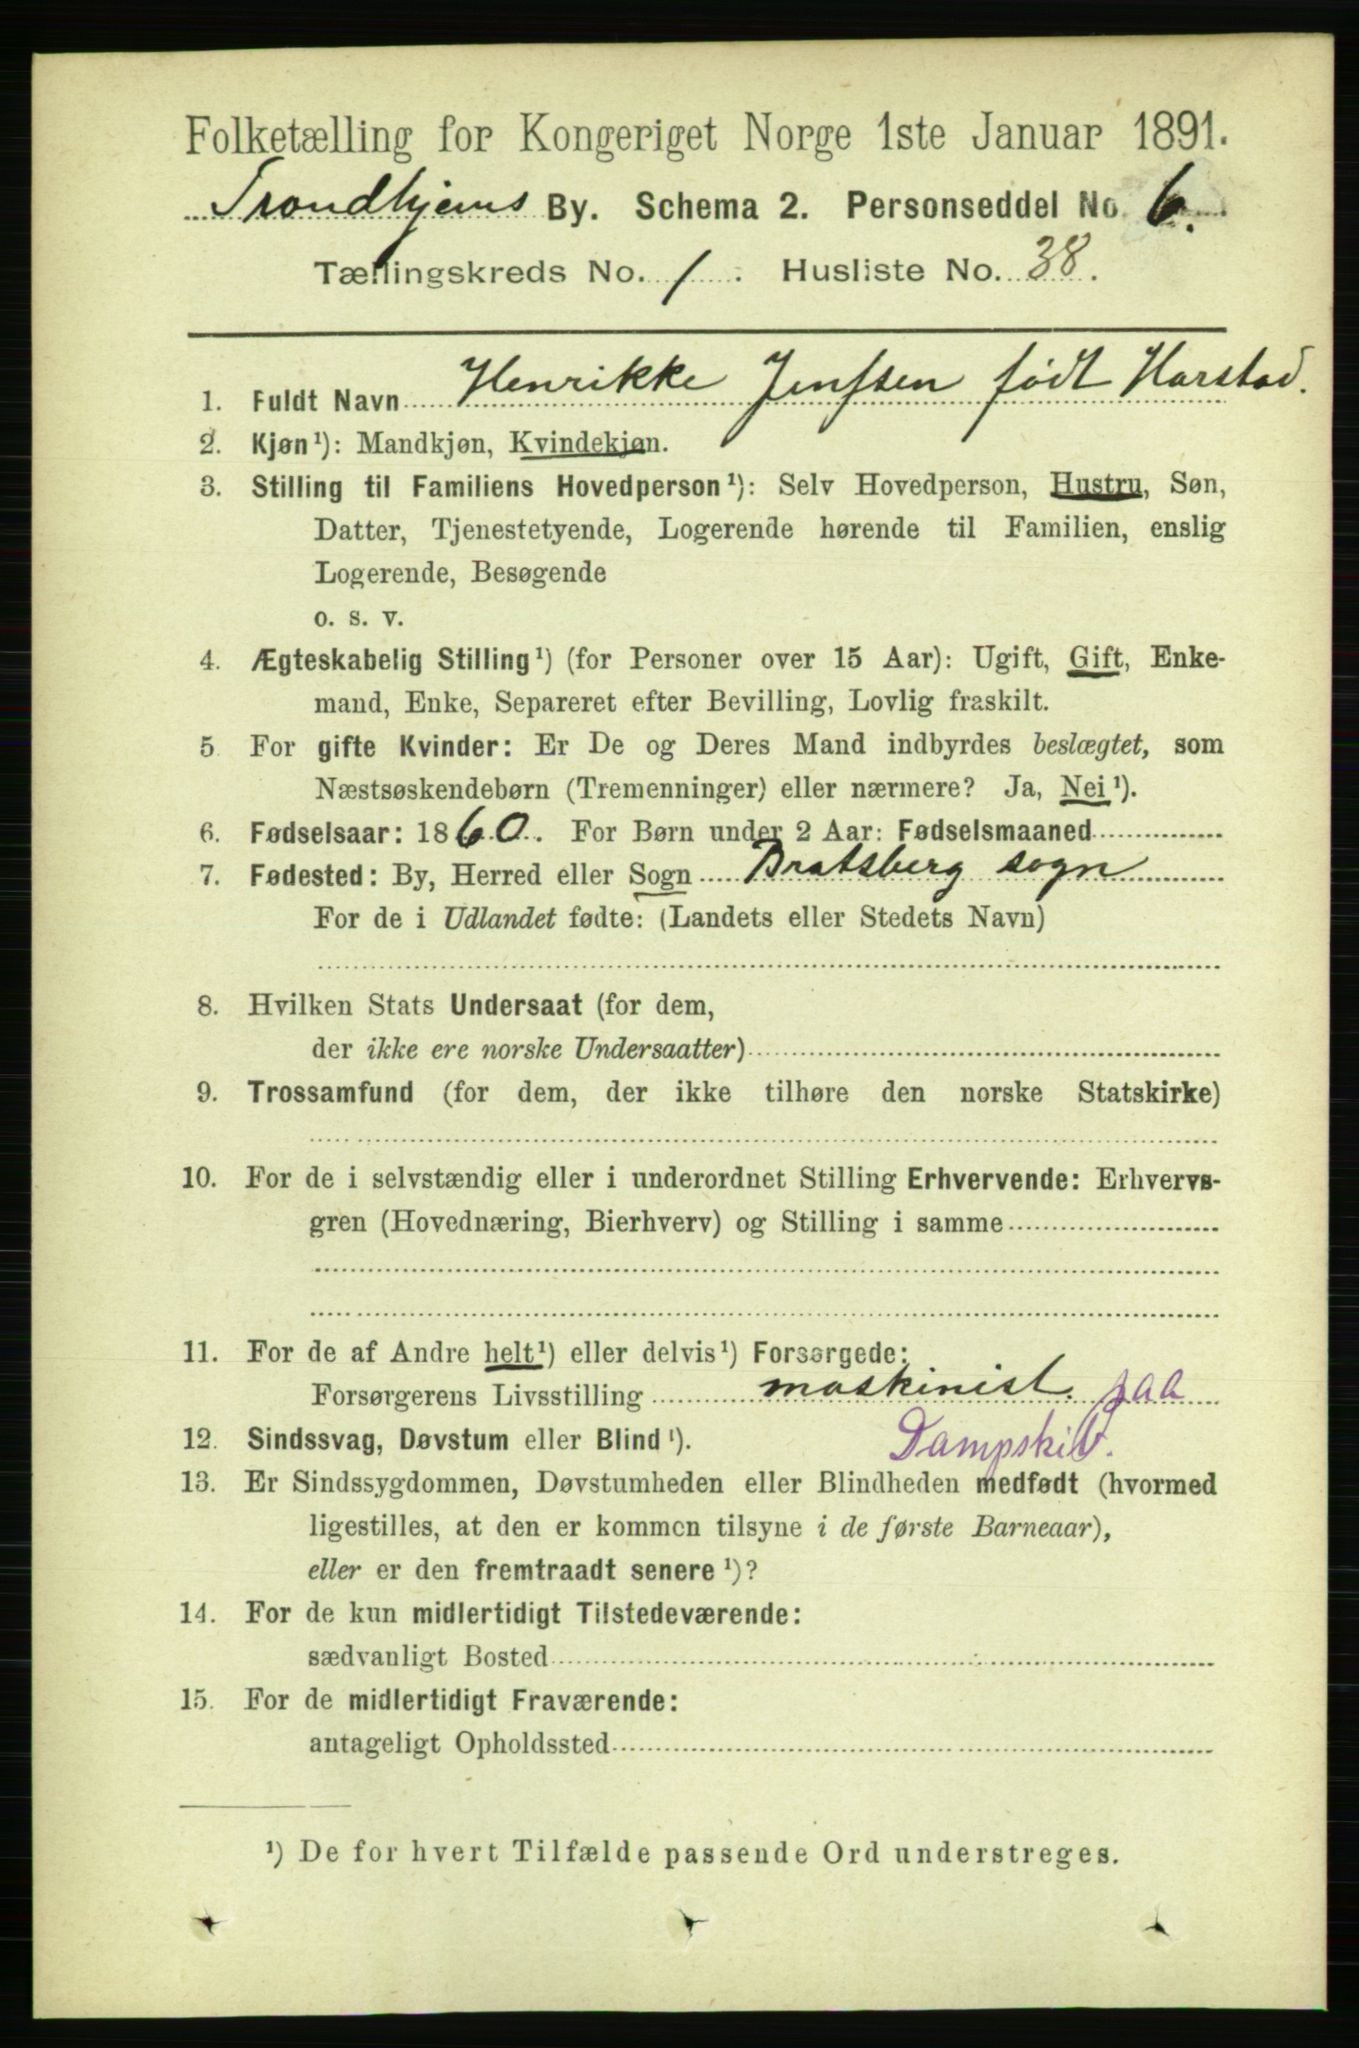 Folketælling for Kongeriget Norge 1ste Januar 1891.
Trondhjems By. Schema 2. Personseddel No. 6.
Tællingskreds No. 1. Husliste No. 38.
1. Fuldt Navn Henrikke Jenssen født Harstad.
2. Kjøn¹): Mandkjøn, Kvindekjøn.
3. Stilling til Familiens Hovedperson¹): Selv Hovedperson, Hustru, Søn,
Datter, Tjenestetyende, Logerende hørende til Familien, enslig
Logerende, Besøgende
o. s. v.
4. Ægteskabelig Stilling¹) (for Personer over 15 Aar): Ugift, Gift, Enke-
mand, Enke, Separeret efter Bevilling, Lovlig fraskilt.
5. For gifte Kvinder: Er De og Deres Mand indbyrdes beslægtet, som
Næstsøskendebørn (Tremenninger) eller nærmere? Ja, Nei¹).
6. Fødselsaar: 1860. For Børn under 2 Aar: Fødselsmaaned
7. Fødested: By, Herred eller Sogn Bratsberg sogn
For de i Udlandet fødte: (Landets eller Stedets Navn)
8. Hvilken Stats Undersaat (for dem,
der ikke ere norske Undersaatter)
9. Trossamfund (for dem, der ikke tilhøre den norske Statskirke)
10. For de i selvstændig eller i underordnet Stilling Erhvervende: Erhvervs-
gren (Hovednæring, Bierhverv) og Stilling i samme
11. For de af Andre helt¹) eller delvis¹) Forsørgede:
Forsørgerens Livsstilling maskinist. paa
Dampskib.
12. Sindssvag, Døvstum eller Blind¹).
13. Er Sindssygdommen, Døvstumheden eller Blindheden medfødt (hvormed
ligestilles, at den er kommen tilsyne i de første Barneaar),
eller er den fremtraadt senere¹)?
14. For de kun midlertidigt Tilstedeværende:
sædvanligt Bosted
15. For de midlertidigt Fraværende:
antageligt Opholdssted
¹) De for hvert Tilfælde passende Ord understreges.